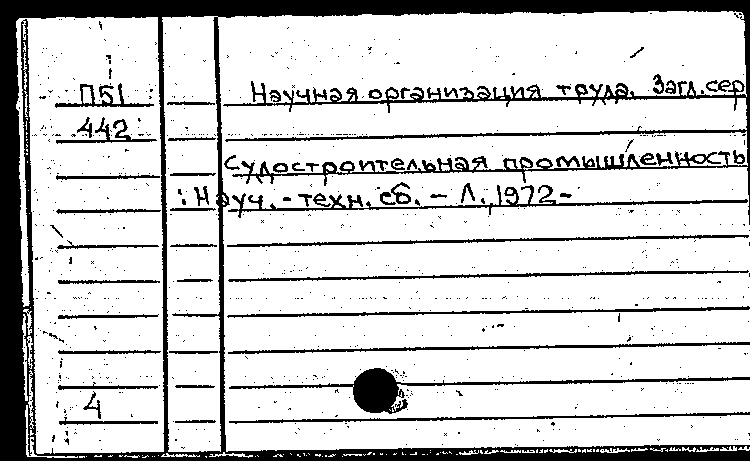 П51 Научная организация труда. Загл. сер
442
Судостроительная промышленность
: Науч.-техн. сб. – Л., 1972-
4